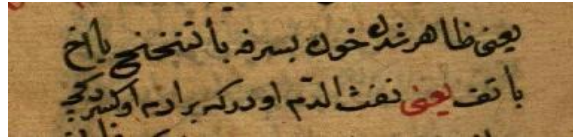 یعنی ظاهر شدن خون بسرفه یا تنخنح یا اخ
یا تف یعنی نفث الدم او درکه برادنه او کسردکچه